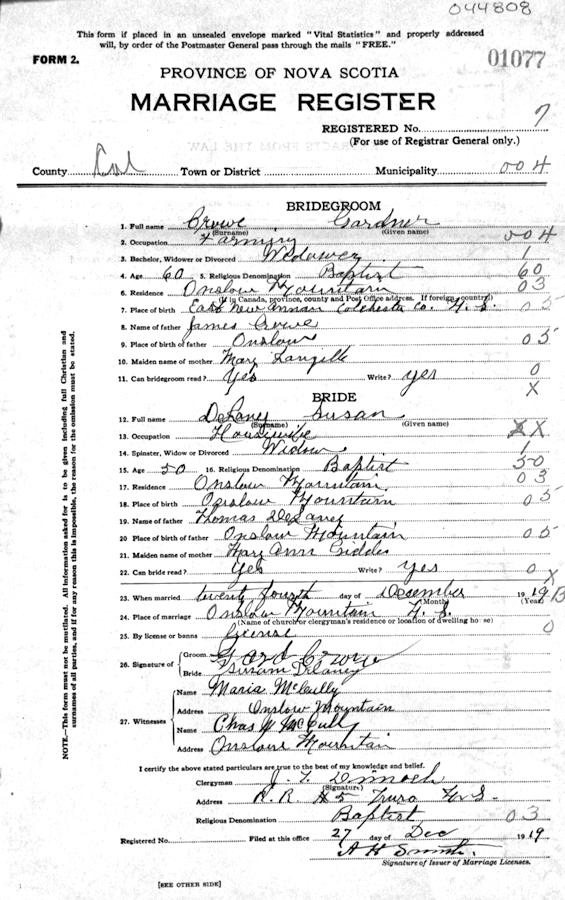 044808
This form if placed in an unsealed envelope marked "Vital Statistics" and properly addressed
will, by order of the Postmaster General pass through the mails "FREE."
FORM 2.
01077
PROVINCE OF NOVA SCOTIA
MARRIAGE REGISTER
REGISTERED No. 7
(For use of Registrar General only.)
County Col Town or District Municipality 004
BRIDEGROOM
1. Full name Crowe Gardner
(Surname) (Given name)
2. Occupation Farming 004
3. Bachelor, Widower or Divorced Widower 1
4. Age 60 5. Religious Denomination Baptist 60
6. Residence Onslow Mountain 03
(If in Canada, province, county and Post Office address. If foreign, country)
7. Place of birth East New Annan Colchester Co. N. S. 05
8. Name of father James Crowe
9. Place of father Onslow 05
10. Maiden name of mother Mary Langille
11. Can bridegroom read? Yes Write? yes 0
X
BRIDE
12. Full name DeLaney Susan
(Surname) (Given name)
13. Occupation Housewife XX
14. Spinster, Widow or Divorced Widow 1
15. Age 50 16. Religious Denomination Baptist 50
17. Residence Onslow Mountain 03
18. Place of birth Onslow Mountain 05
19. Name of father Thomas DeLaney
20. Place of birth of father Onslow Mountain 05
21. Maiden name of mother Mary Ann Giddes
22. Can bride read? Yes Write? Yes 0 X
23. When married twenty fourth day of Desember 1919 B
(Month) (Year)
24. Place of marriage Onslow Mountain N. S.
(Name of church or clergyman's residence or location of dwelling house)
25. By license or banns License 0
26. Signature of Groom Gard Crowe
Bride Susan Delaney
27. Witnesses
Name Maria McCully
Address Onslow Mountain
Name Chas McCully
Address Onslow Mountain
I certify the above stated particulars are true to the best of my knowledge and belief.
Clergyman J. T. Dimock
(Signature)
Address R. R. #5 Truro N. S.
Religious Denomination Baptist 03
Registered No. Filed at this office 27 day of Dec 1919
A H Smith
Signature of Issuer of Marriage Licenses.
[SEE OTHER SIDE]
NOTE.—This form must not be mutilated. All information asked for is to be given including full Christian and
surnames of all parties, and if for any reason this is impossible, the reason for the omission must be stated.